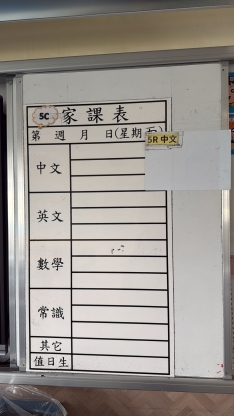 5C 家課表
第 週 月 日(星期五)
5R 中文
中文
英文
數學
常識
其它
值日生